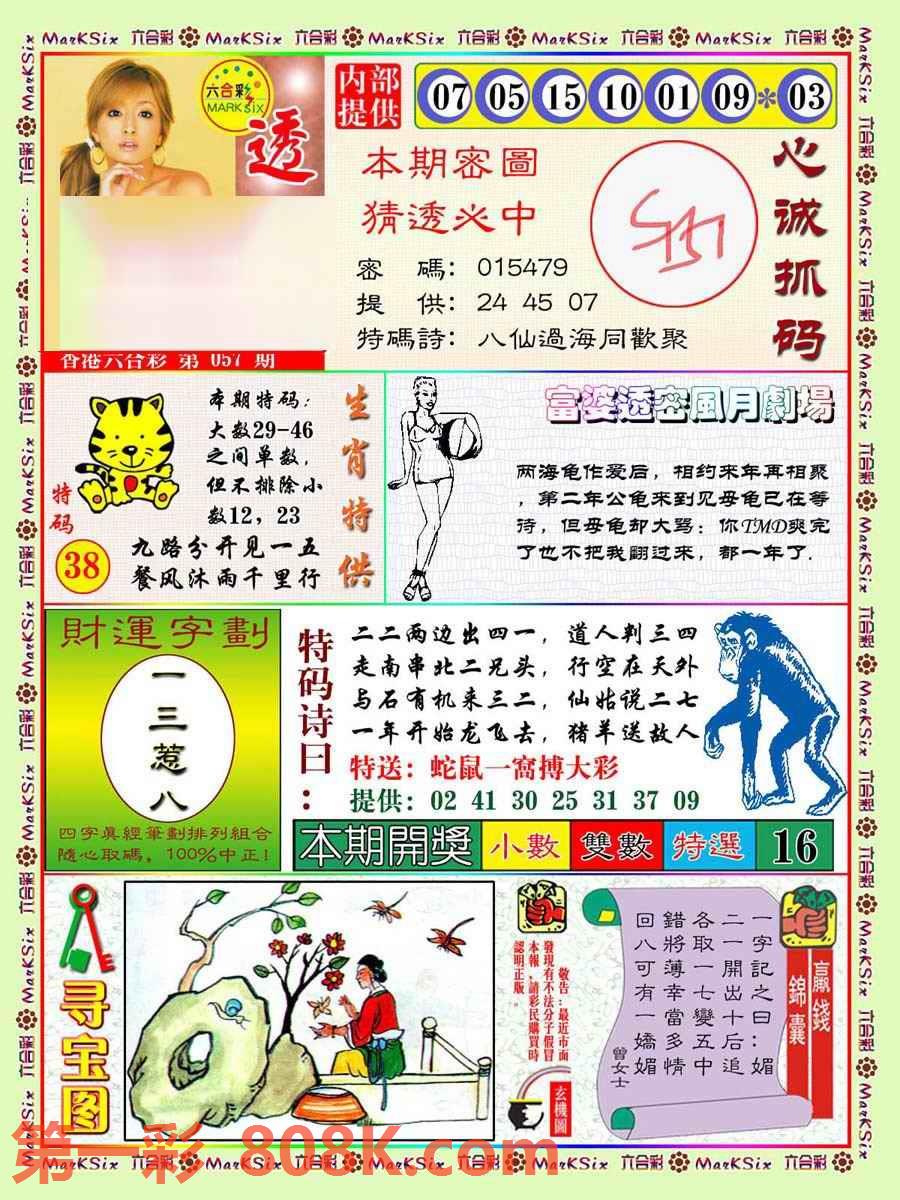 MarKSix 六合彩 MarKSix 六合彩 MarKSix 六合彩 MarKSix 六合彩 MarKSix 六合彩
六合彩
MARKSix
透
内部
提供
07 05 15 10 01 09 * 03
本期密圖
猜透必中
密 碼: 015479
提 供: 24 45 07
特碼詩: 八仙過海同歡聚
心诚抓码
香港六合彩 第 057 期
本期特码:
大数29-46
之间单数,
但不排除小
数12, 23
特码
38
九路分开见一五
餐风沐雨千里行
生肖特供
富婆透密風月劇場
两海龟作爱后, 相约来年再相聚
, 第二年公龟来到见母龟已在等
待, 但母龟却大骂: 你TMD爽完
了也不把我翻过来, 都一年了.
財運字劃
一
三
惹
八
四字眞經筆劃排列組合
隨心取碼, 100%中正!
特码诗曰:
二二两边出四一, 道人判三四
走南串北二兄头, 行空在天外
与石有机来三二, 仙姑说二七
一年开始龙飞去, 猪羊送故人
特送: 蛇鼠一窩搏大彩
提供: 02 41 30 25 31 37 09
本期開獎 小數 雙數 特選 16
寻宝图
敬告:最近市面
發現有不法分子假冒
本報,請彩民購買時
認明正版。
玄機圖
贏錢
錦囊
一字記之曰:媚
二一開出十后追
各取一七變五中
錯將薄幸當多情
回八可有一嬌媚
曾女士
第一彩 808K.com
MarKSix 六合彩 MarKSix 六合彩 MarKSix 六合彩 MarKSix 六合彩 MarKSix 六合彩